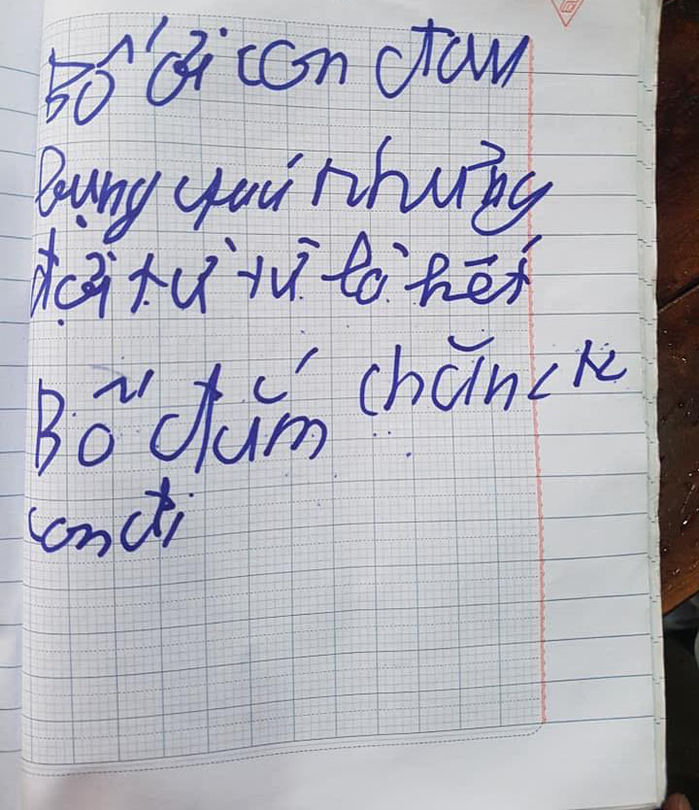 Bố ơi con đau
bụng quá nhưng
đợi từ từ là hết
Bố đắm chăn
con đi